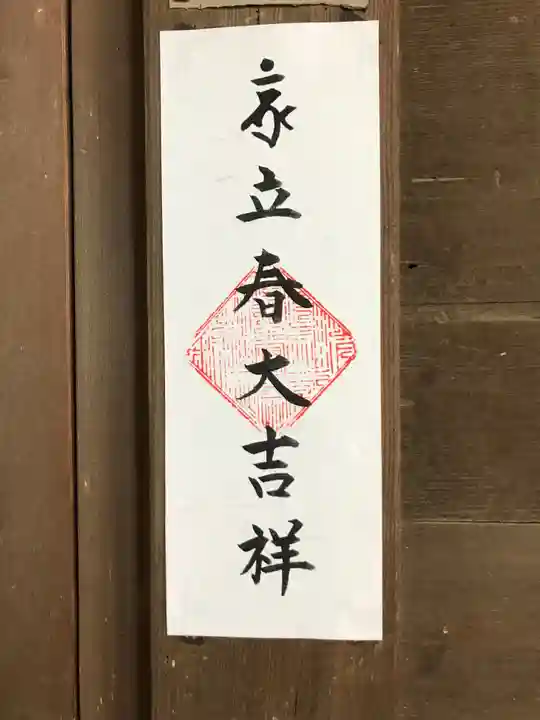 立春大吉祥